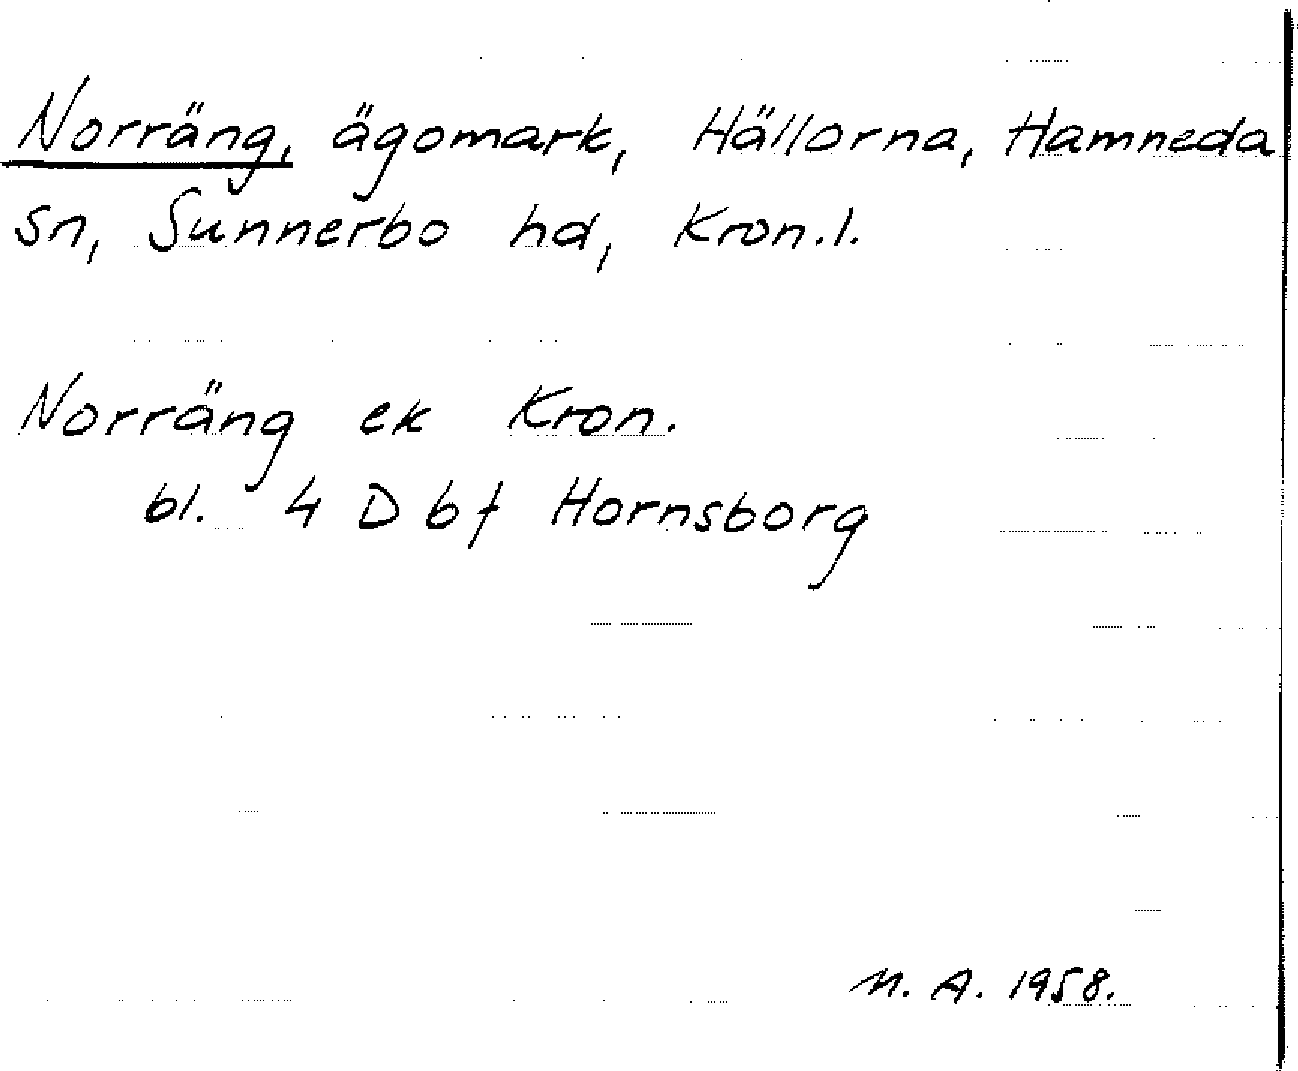 Norräng, ägomark, Hällorna, Hamneda
sn, Sunnerbo hd, Kron.l.
Norräng ek Kron.
bl. 4 D b f Hornsborg
N. A. 1958.